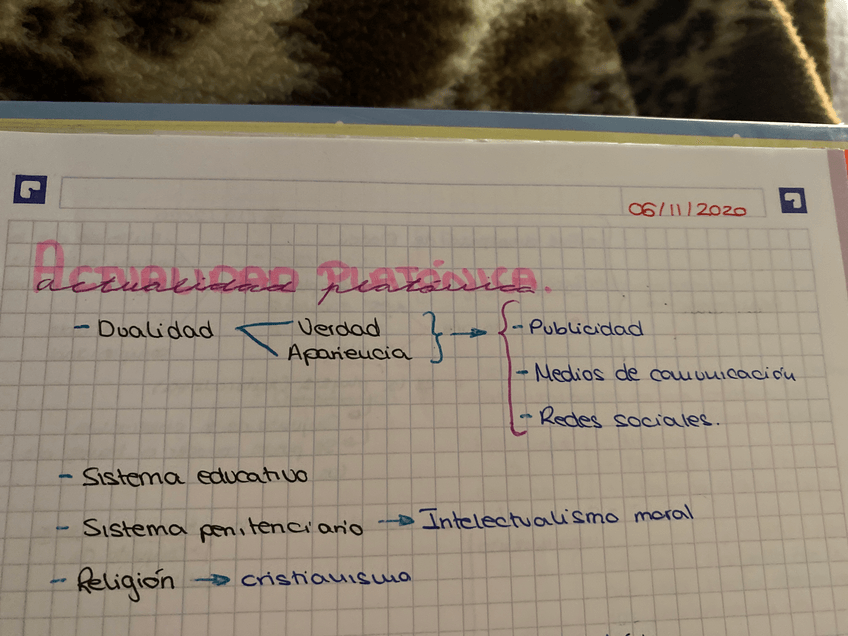 06/11/2020
ACTUALIDAD PLATÓNICA.
actualidad platónica
- Dualidad Verdad Apariencia } → { - Publicidad
- Medios de comunicación
- Redes sociales.
- Sistema educativo
- Sistema penitenciario → Intelectualismo moral
- Religión → cristianismo